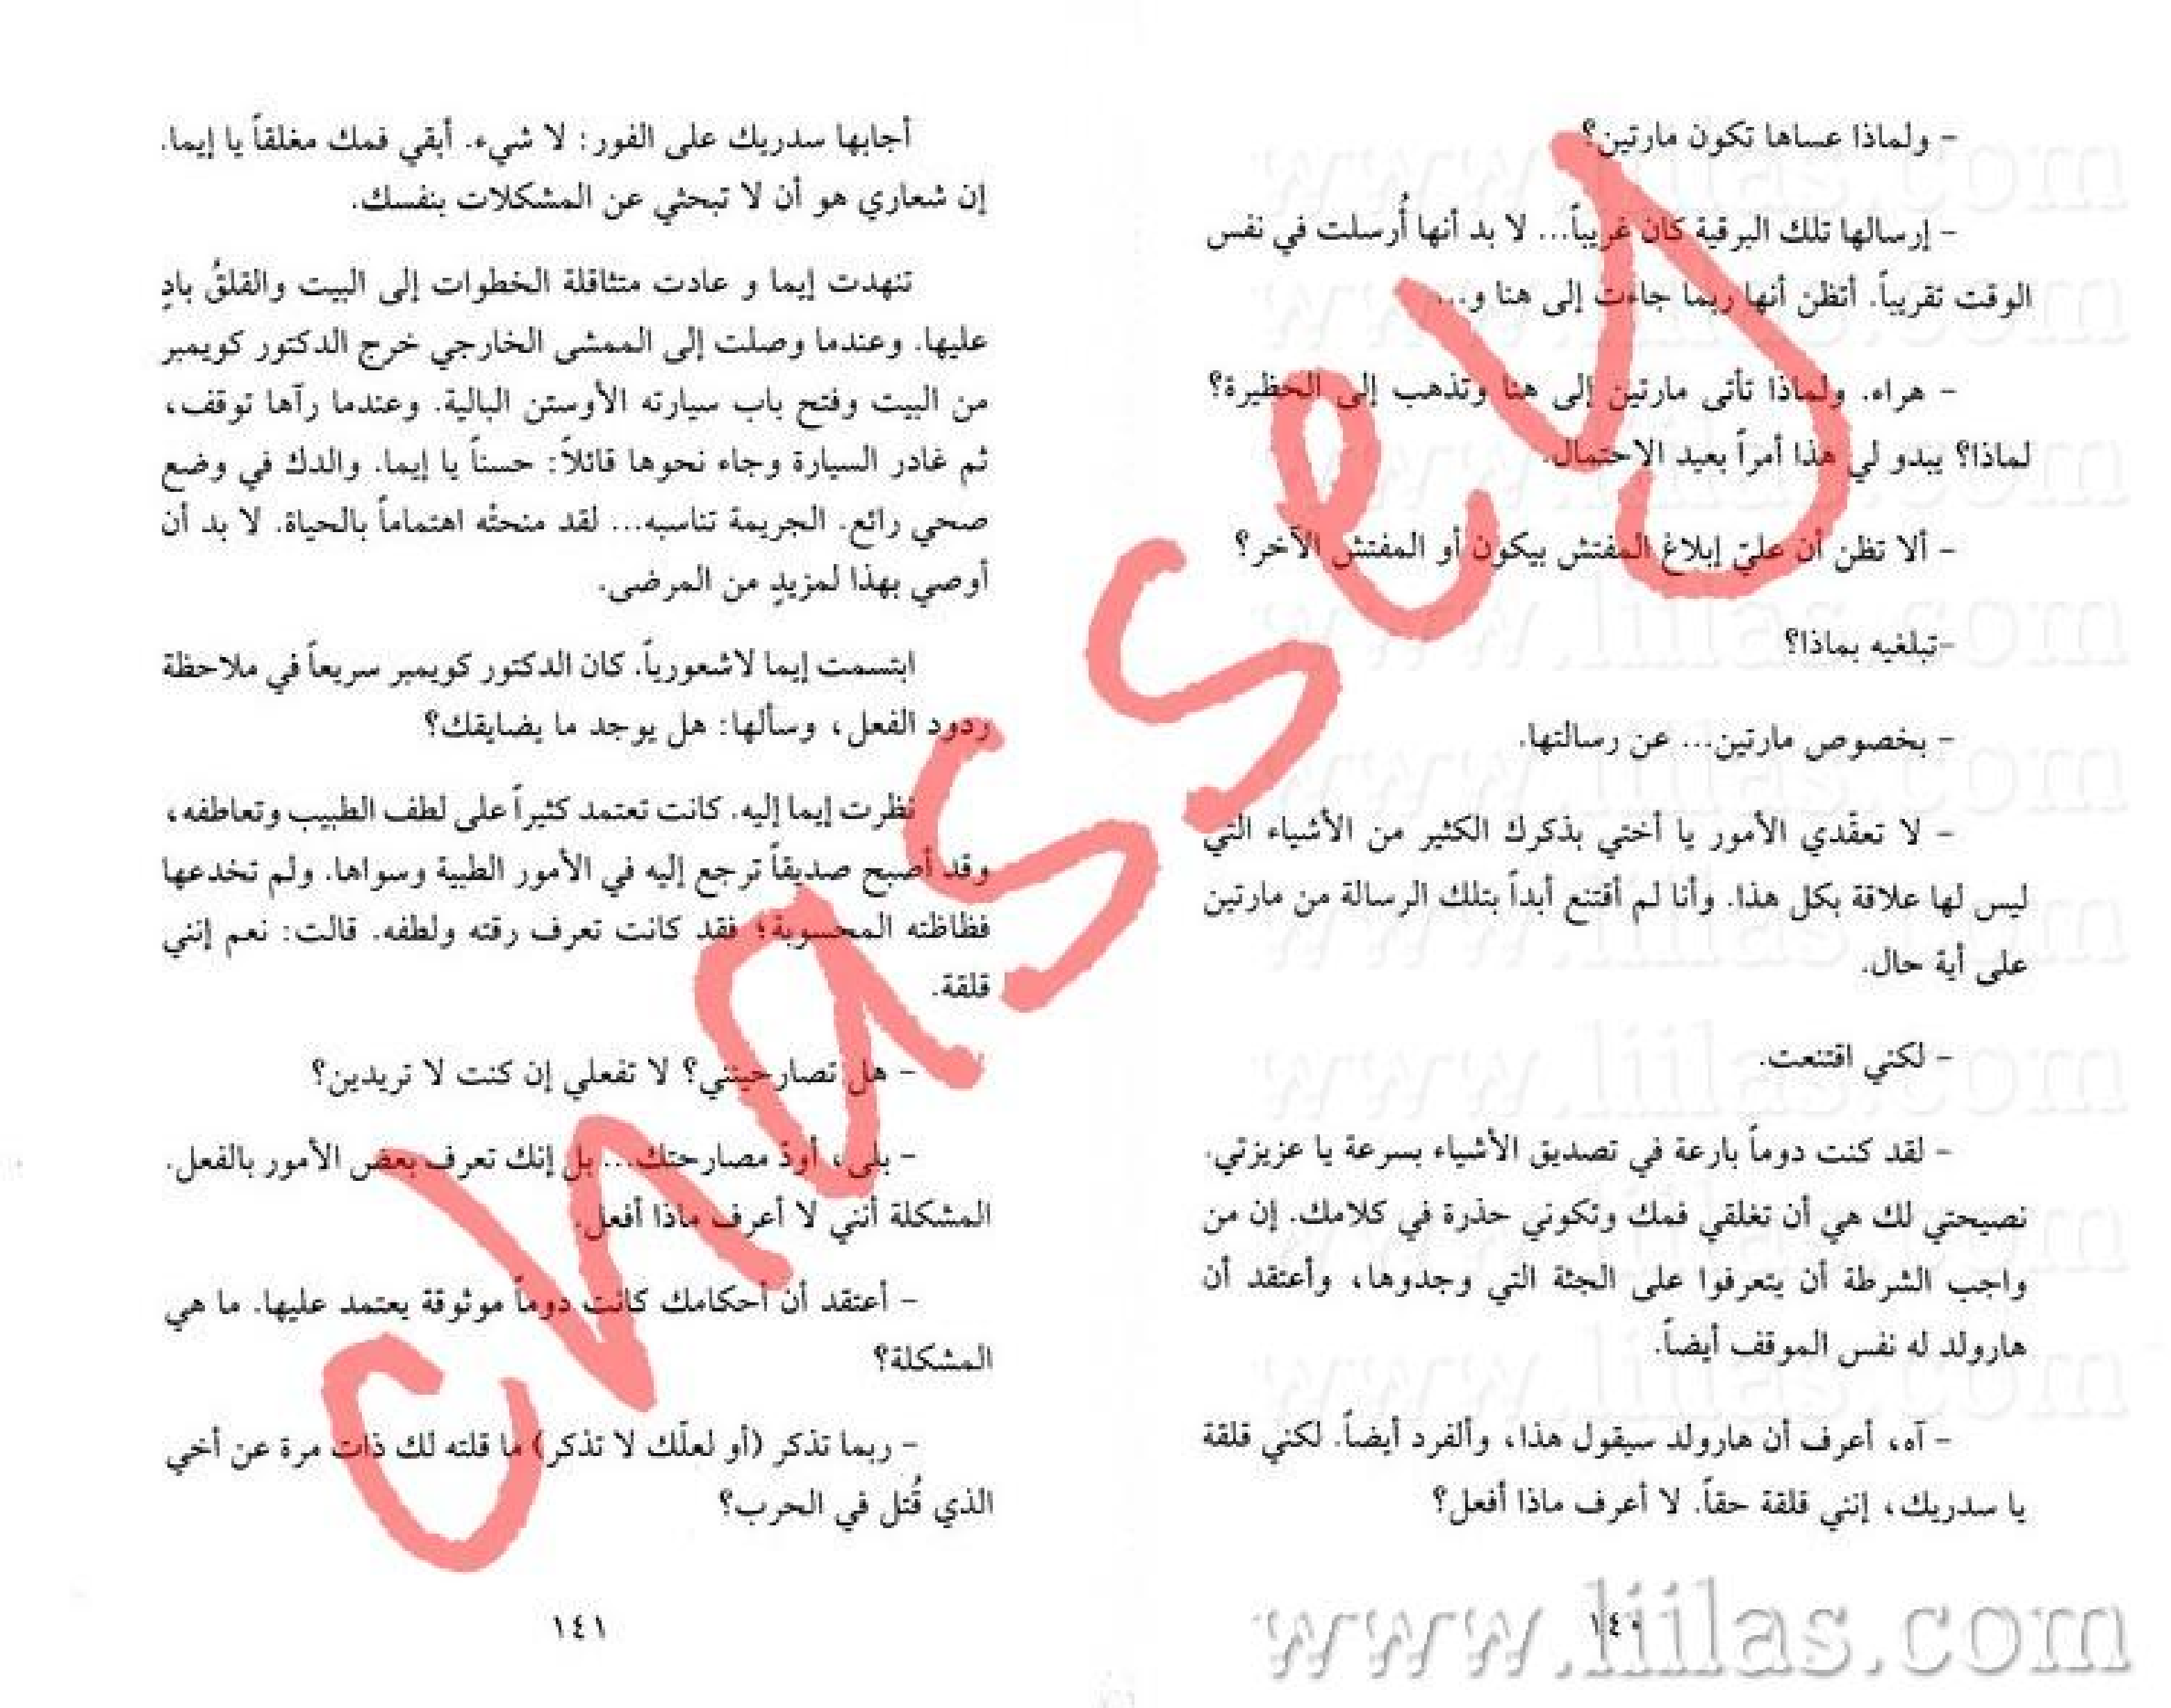 – ولماذا عساها تكون مارتين؟
– إرسالها تلك البرقية كان غريباً... لا بد أنها أُرسلت في نفس
الوقت تقريباً. أتظن أنها ربما جاءت إلى هنا و...
– هراء. ولماذا تأتي مارتين إلى هنا وتذهب إلى الحظيرة؟
لماذا؟ يبدو لي هذا أمراً بعيد الاحتمال.
– ألا تظن أن عليّ إبلاغ المفتش بيكون أو المفتش الآخر؟
–تبلغيه بماذا؟
– بخصوص مارتين... عن رسالتها.
– لا تعقّدي الأمور يا أختي بذكرك الكثير من الأشياء التي
ليس لها علاقة بكل هذا. وأنا لم أقتنع أبداً بتلك الرسالة من مارتين
على أية حال.
– لكني اقتنعت.
– لقد كنت دوماً بارعة في تصديق الأشياء بسرعة يا عزيزتي.
نصيحتي لك هي أن تغلقي فمك وتكوني حذرة في كلامك. إن من
واجب الشرطة أن يتعرفوا على الجثة التي وجدوها، وأعتقد أن
هارولد له نفس الموقف أيضاً.
– آه، أعرف أن هارولد سيقول هذا، وألفرد أيضاً. لكني قلقة
يا سدريك، إنني قلقة حقاً. لا أعرف ماذا أفعل؟
١٤٠
أجابها سدريك على الفور: لا شيء. أبقي فمك مغلقاً يا إيما.
إن شعاري هو أن لا تبحثي عن المشكلات بنفسك.
تنهدت إيما و عادت متثاقلة الخطوات إلى البيت والقلقُ بادٍ
عليها. وعندما وصلت إلى الممشى الخارجي خرج الدكتور كويمبر
من البيت وفتح باب سيارته الأوستن البالية. وعندما رآها توقف،
ثم غادر السيارة وجاء نحوها قائلاً: حسناً يا إيما. والدك في وضع
صحي رائع. الجريمة تناسبه... لقد منحتْه اهتماماً بالحياة. لا بد أن
أوصي بهذا لمزيدٍ من المرضى.
ابتسمت إيما لاشعورياً. كان الدكتور كويمبر سريعاً في ملاحظة
ردود الفعل، وسألها: هل يوجد ما يضايقك؟
نظرت إيما إليه. كانت تعتمد كثيراً على لطف الطبيب وتعاطفه،
وقد أصبح صديقاً ترجع إليه في الأمور الطبية وسواها. ولم تخدعها
فظاظته المحسوبة؛ فقد كانت تعرف رقته ولطفه. قالت: نعم إنني
قلقة.
– هل تصارحينني؟ لا تفعلي إن كنت لا تريدين؟
– بلى، أودّ مصارحتك... بل إنك تعرف بعض الأمور بالفعل.
المشكلة أنني لا أعرف ماذا أفعل.
– أعتقد أن أحكامك كانت دوماً موثوقة يعتمد عليها. ما هي
المشكلة؟
– ربما تذكر (أو لعلّك لا تذكر) ما قلته لك ذات مرة عن أخي
الذي قُتل في الحرب؟
١٤١
www.liilas.com